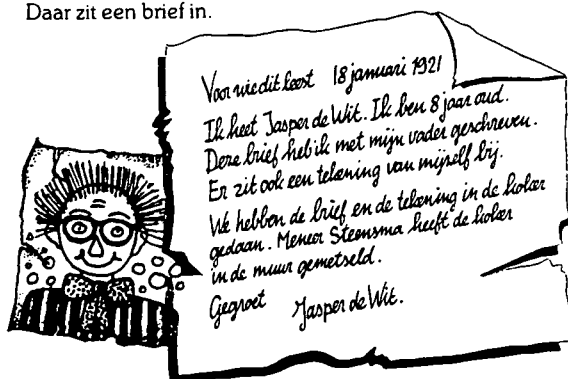 Daar zit een brief in.
Voor wie dit leest 18 januari 1921
Ik heet Jasper de Wit. Ik ben 8 jaar oud.
Deze brief heb ik met mijn vader geschreven.
Er zit ook een tekening van mijzelf bij.
We hebben de brief en de tekening in de koker
gedaan. Meneer Steensma heeft de koker
in de muur gemetseld.
Gegroet Jasper de Wit.